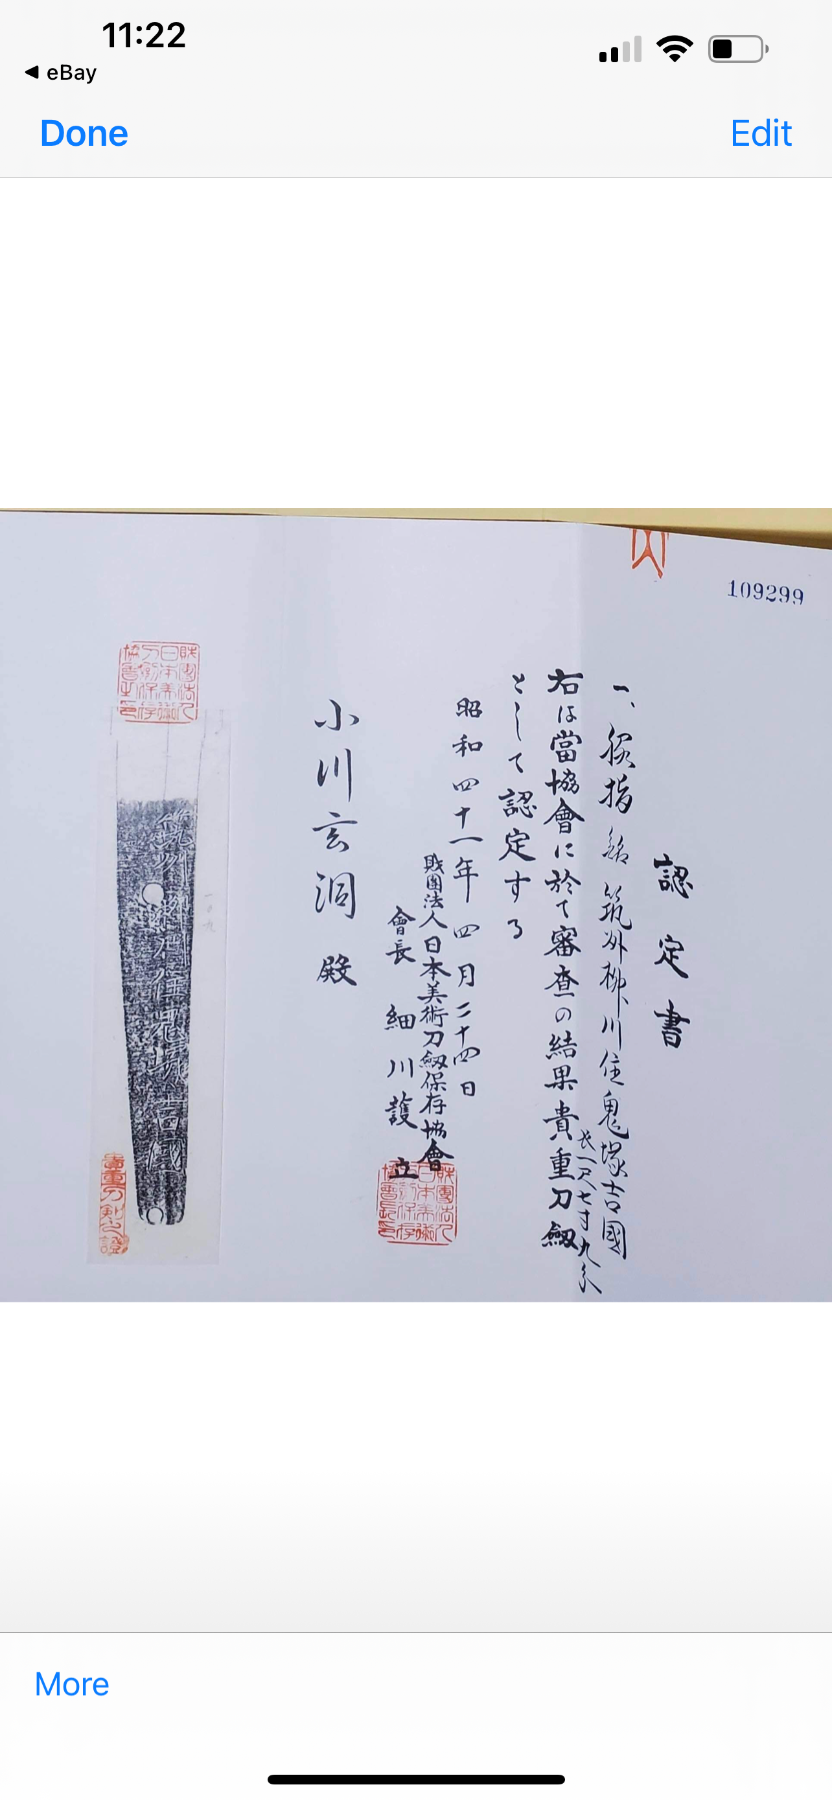 11:22
◀ eBay
Done
Edit
109299
認定書
一、脇指 銘 筑州柳川住鬼塚吉國
長一尺七寸九分
右は當協會に於て審査の結果貴重刀劔
として認定する
昭和四十一年四月二十四日
財團法人日本美術刀劔保存協會
會長 細川護立
財團法人日本美術刀劔保存協會長之印
小川玄洞 殿
財團法人日本美術刀劔保存協會之印
筑州柳川住鬼塚吉國
貴重刀剣之證
More